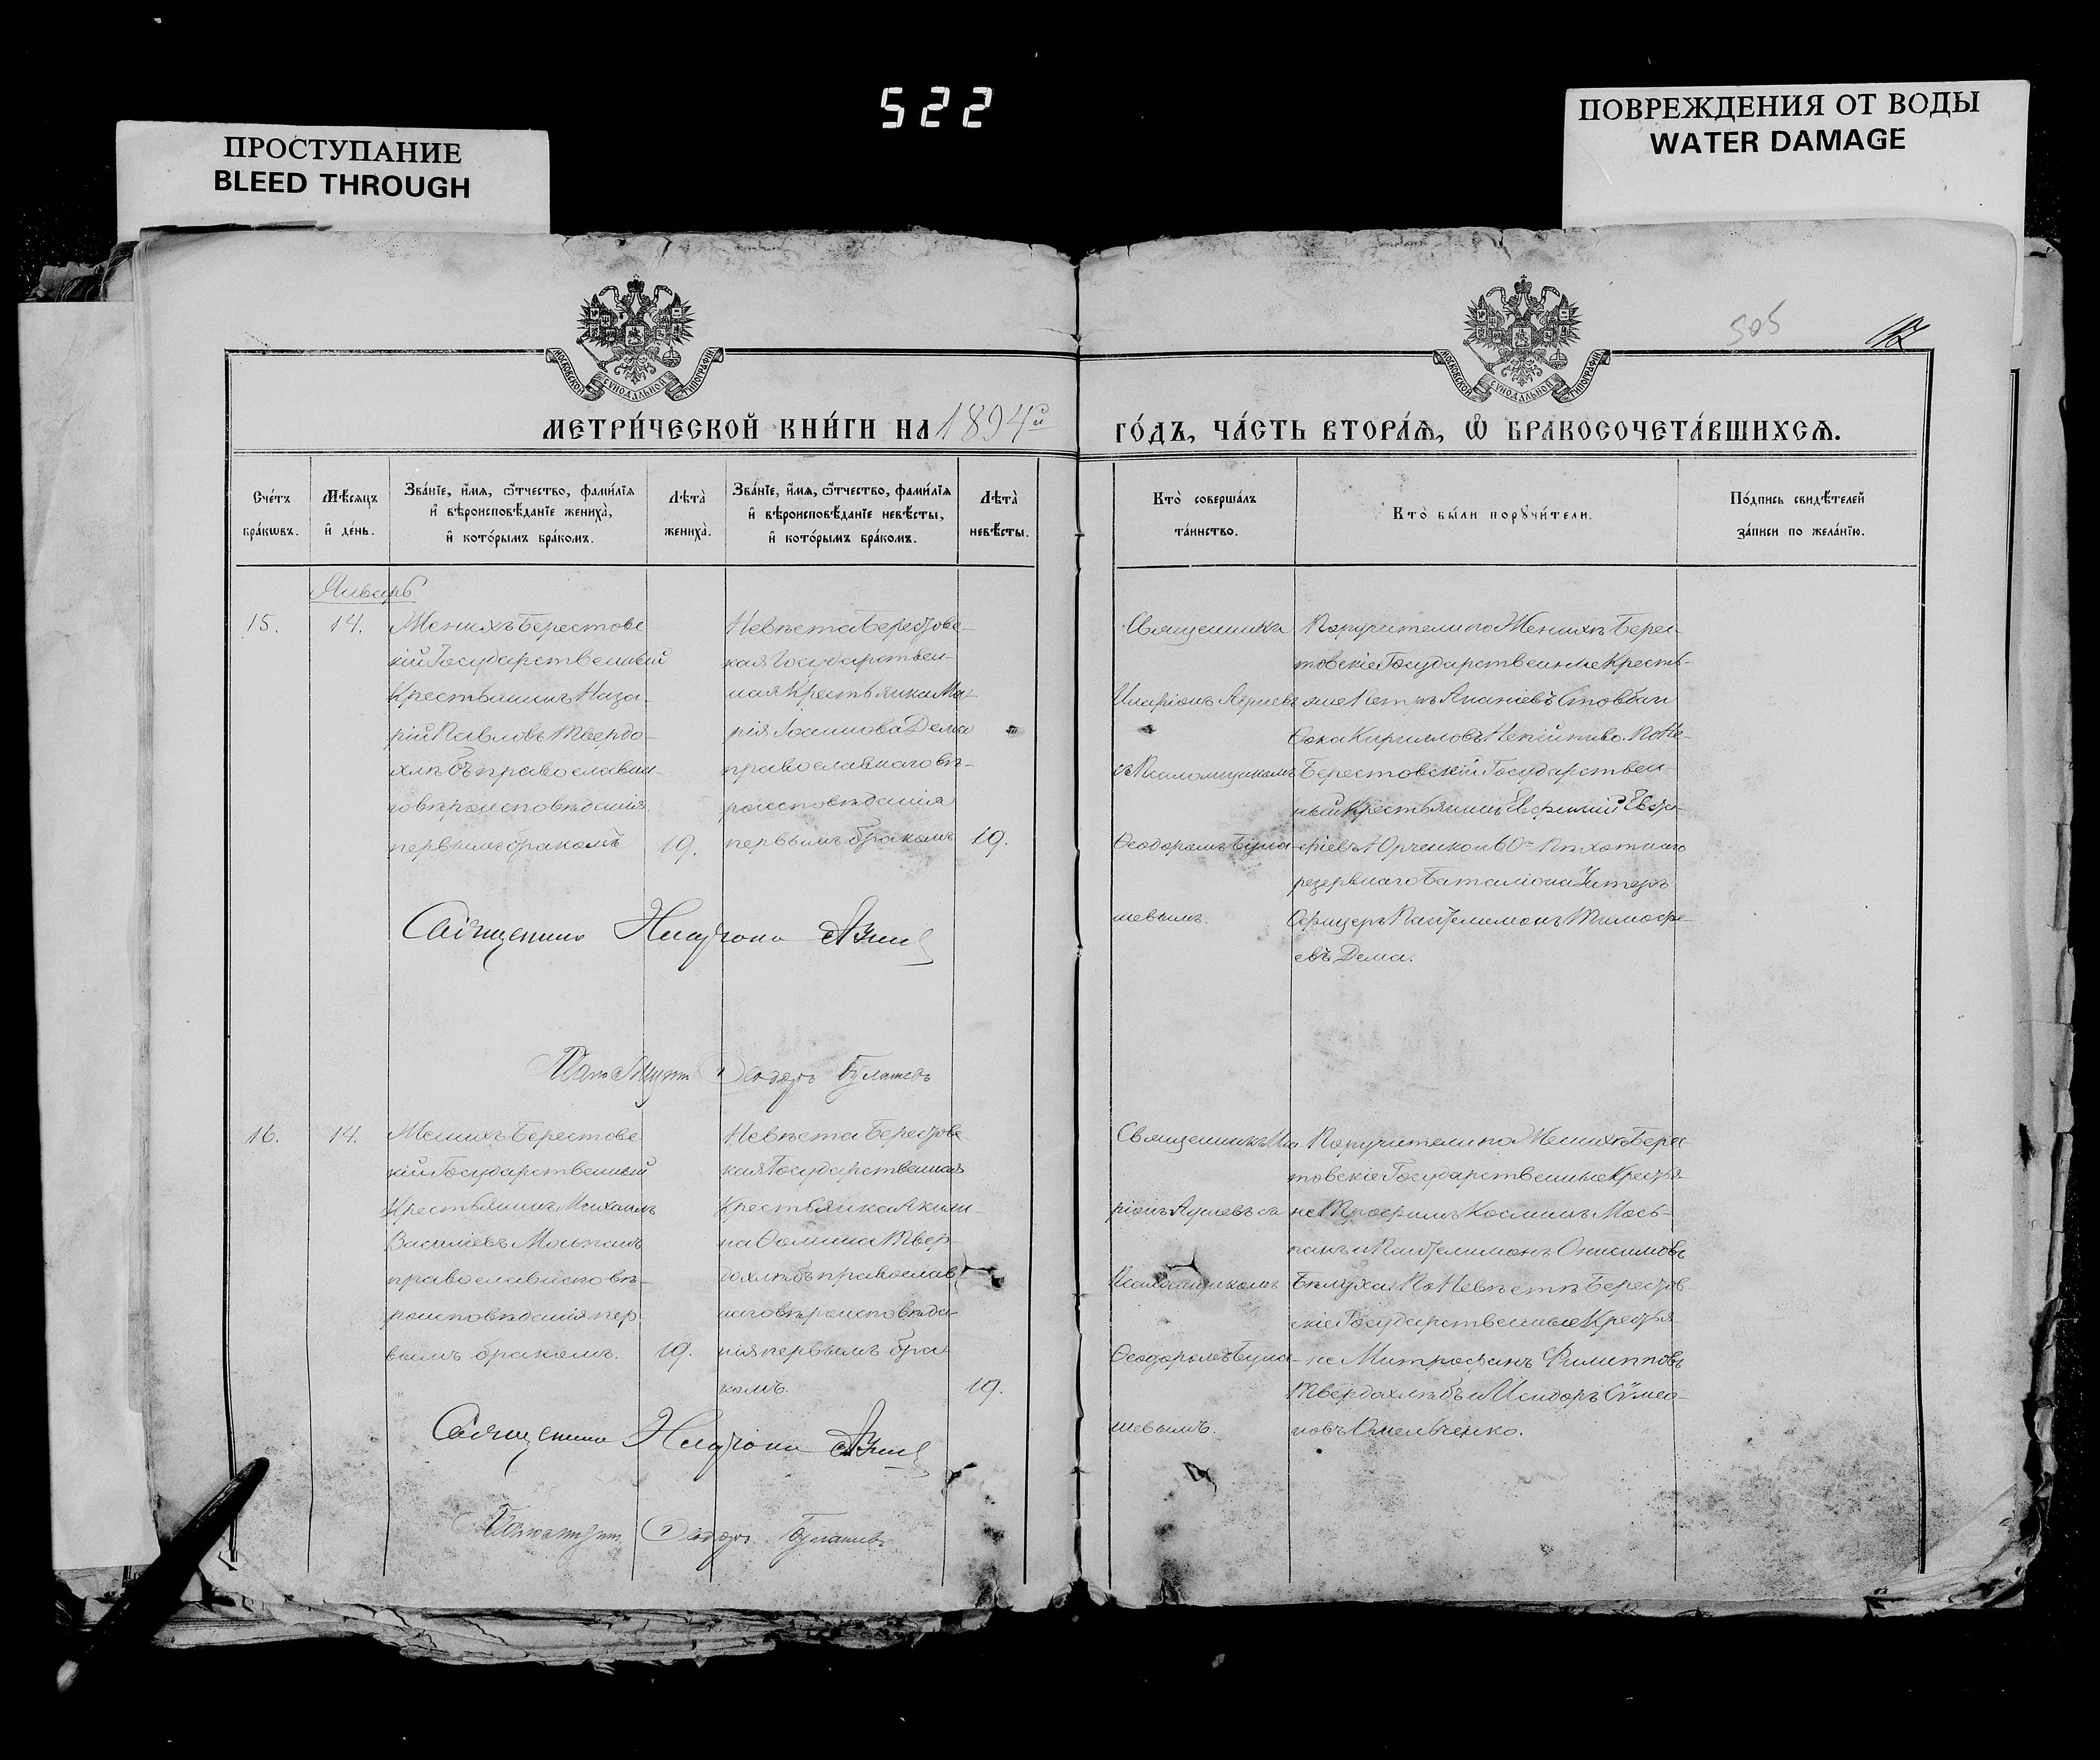 522
ПРОСТУПАНИЕ
BLEED THROUGH
ПОВРЕЖДЕНИЯ ОТ ВОДЫ
WATER DAMAGE
505
МОСКОВСКОЙ СУНОДАЛЬНОЙ ТИПОГРАФІИ
МОСКОВСКОЙ СУНОДАЛЬНОЙ ТИПОГРАФІИ
МЕТРИ́ЧЕСКОЙ КНИ́ГИ НА 1894й ГО́ДЪ, ЧА́СТЬ ВТОРА́Ѧ, Ѡ҆ БРАКОСОЧЕТА́ВШИХСѦ.
Сче́тъ
бра́кѡвъ.
Мѣ́сѧцъ
и҆ де́нь.
Зва́нїе, и҆́мѧ, ѻ҆́тчество, фами́лїѧ
и҆ вѣроисповѣ́данїе жениха̀,
и҆ кото́рымъ бра́комъ.
Лѣта̀
жениха̀.
Зва́нїе, и҆́мѧ, ѻ҆́тчество, фами́лїѧ
и҆ вѣроисповѣ́данїе невѣ́сты,
и҆ кото́рымъ бра́комъ.
Лѣта̀
невѣ́сты.
Кто̀ соверша́лъ
та́инство.
Кто̀ бы́ли порꙋчи́тели.
По́дпись свидѣ́телей
за́писи по жела́нїю.
Январь
15.
14.
Женихъ Берестовс
кій Государственный
Крестьянинъ Наза-
рій Павловъ Твердо-
хлѣбъ православна-
го вѣроисповѣданія
первымъ бракомъ
19.
Невѣста Берестовс-
кая Государствен-
ная Крестьянка Ма-
рія Іоаннова Дема
православнаго вѣ-
роисповѣданія
первымъ бракомъ
19.
Священникъ
Иларіонъ
съ Псаломщикомъ
Ѳеодоромъ Була-
шевымъ.
Поручители по Женихѣ Берес-
товскіе Государственные Кресть-
яне Петръ Ананіевъ Стовбан
Ѳока Кирилловъ По Не-
Берестовскій Государствен
ный Крестьянинъ Евфимій
Юрченко и 60го Пѣхотнаго
резервнаго Баталіона Унтеръ
Офицеръ Пантелимонъ Тимофе-
евъ Дема.
Священникъ
Псаломщикъ Ѳеодоръ Булашевъ
16.
14.
Женихъ Берестовс
кій Государственный
Крестьянинъ Михаилъ
Василіевъ Моспанъ
православнаго вѣ-
роисповѣданія пер-
вымъ бракомъ.
19.
Невѣста Берестовс
кая Государственная
Крестьянка Акили-
на Ѳомина Твер-
дохлѣбъ православ
наго вѣроисповѣда-
нія первымъ бра-
комъ.
19.
Священникъ Ила
ріонъ съ
Псаломщикомъ
Ѳеодоромъ Була-
шевымъ.
Поручители по Женихѣ Берес
товскіе Государственные Крестья
не Трофимъ Косминъ Мось-
панъ и Пантелимонъ Онисимовъ
Бѣлуха. По Невѣстѣ Берестов
скіе Государственные Крестья
не Митрофанъ Филипповъ
Твердохлѣбъ и Исидоръ Сѵмео-
новъ Омельченко.
Священникъ
Псаломщикъ Ѳеодоръ Булашевъ